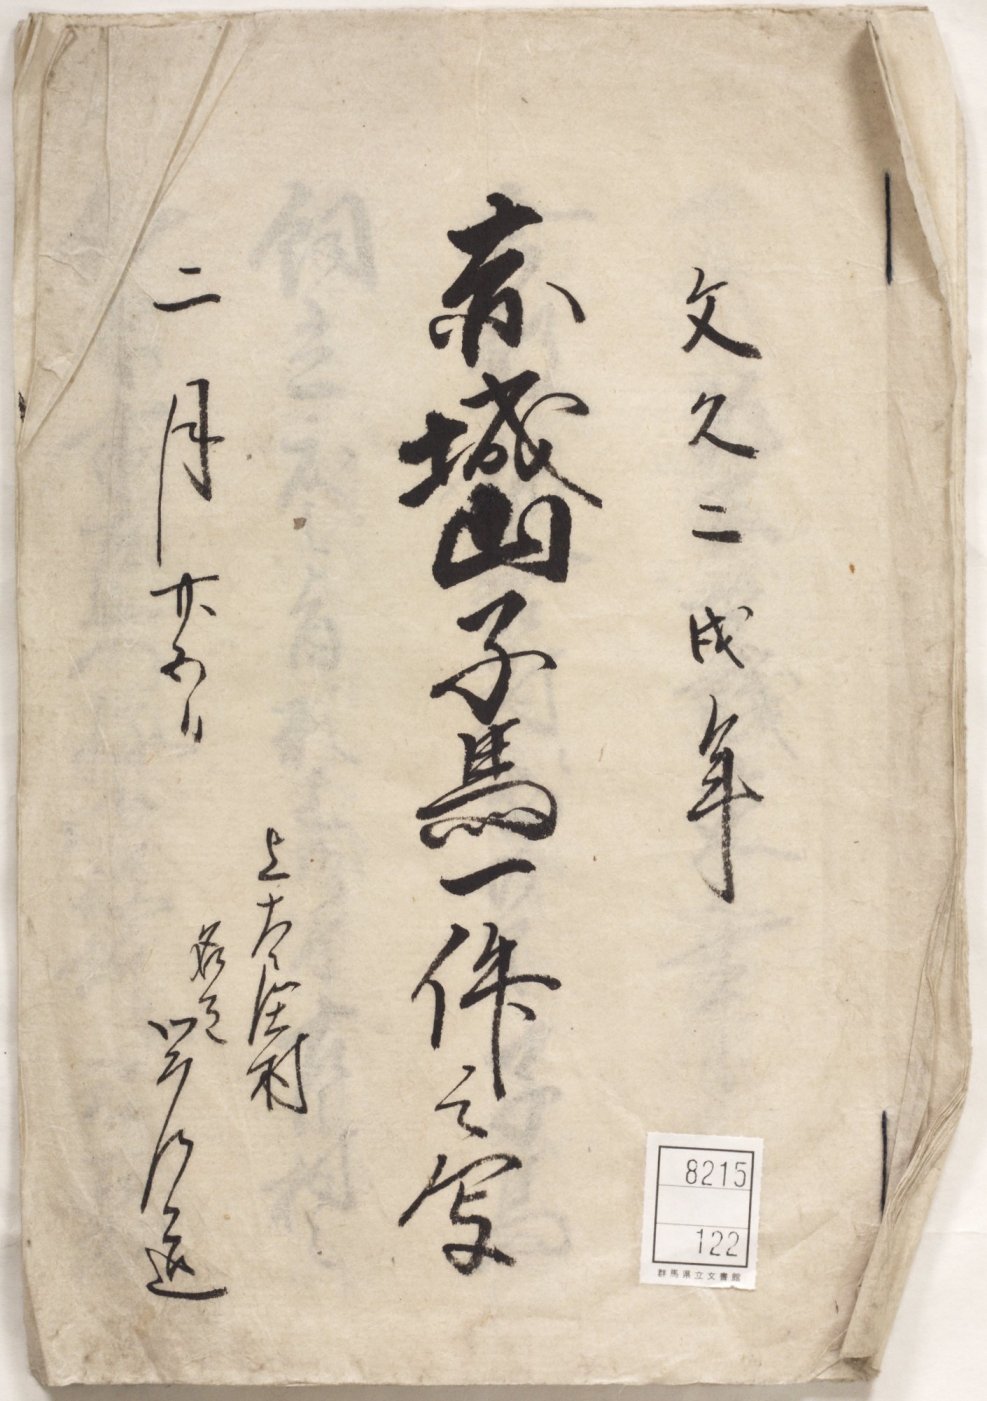 文久二戌年
赤城山子馬一件之写
二月廿五日
村
名主
8215
122
群馬県立文書館